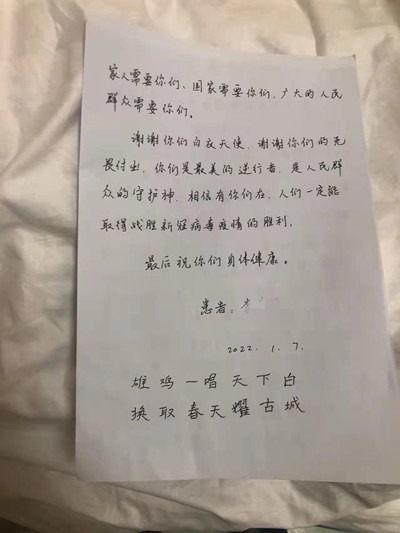 家人需要你们、国家需要你们、广大的人民
群众需要你们。
谢谢你们白衣天使、谢谢你们的无
畏付出、你们是最美的逆行者、是人民群
众的守护神、相信有你们在、人们一定能
取得战胜新冠病毒疫情的胜利。
最后祝你们身体健康。
患者：李
2022. 1. 7.
雄鸡一唱天下白
换取春天耀古城